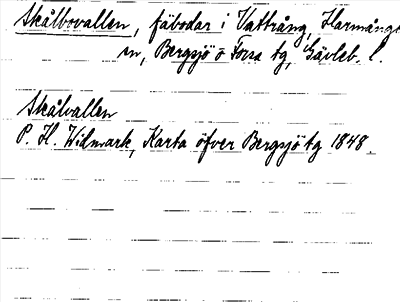 Skålbovallen, fäbodar i Vattrång, Harmånge
en, Bergsjö o Forsa tg, Gävleb. l.
Skålvallen
P. H. Widmark, Karta öfver Bergsjö tg 1848.